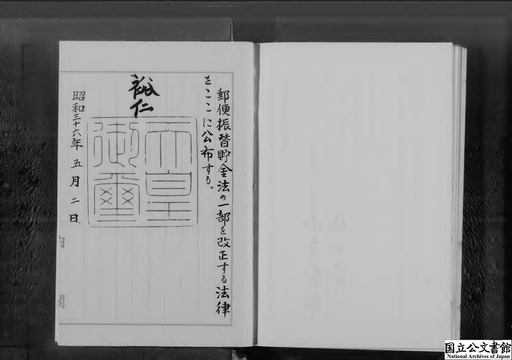 郵便振替貯金法の一部を改正する法律
をここに公布する。
裕仁
天皇
御璽
昭和三十六年五月二日
国立公文書館
National Archives of Japan